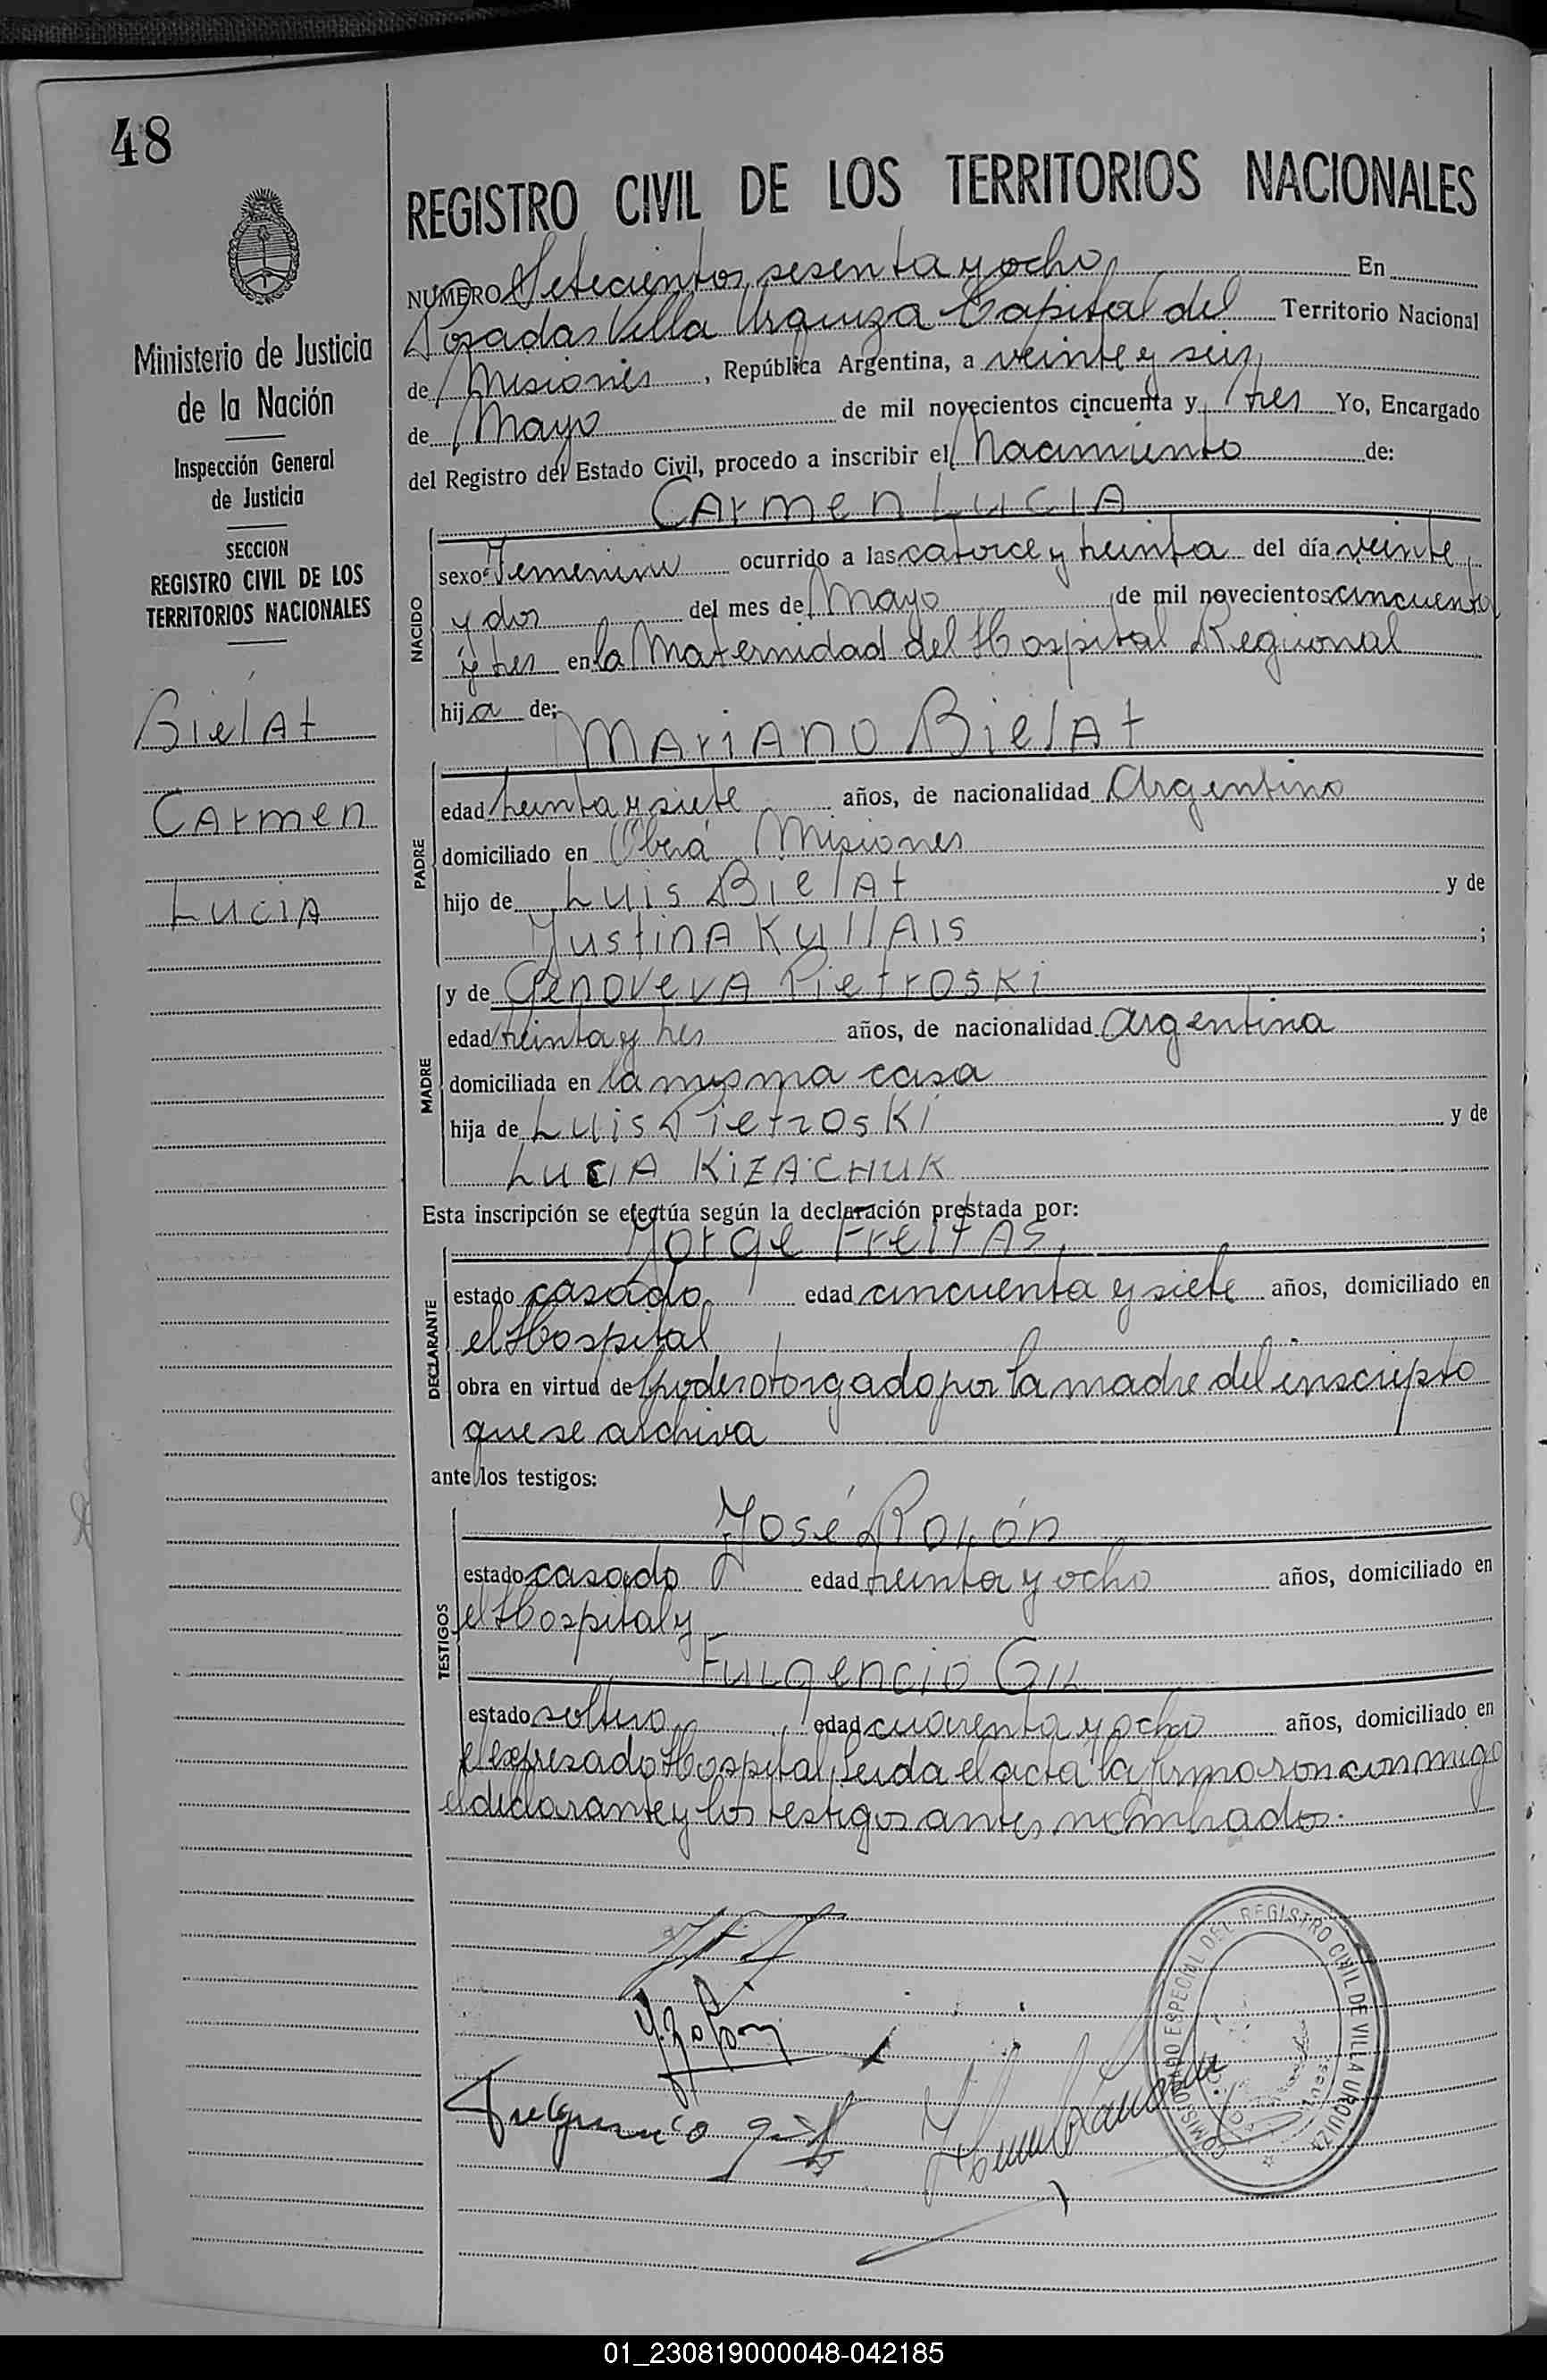 48
Ministerio de Justicia
de la Nación
Inspección General
de Justicia
SECCION
REGISTRO CIVIL DE LOS
TERRITORIOS NACIONALES
Bielat
Carmen
Lucia
REGISTRO CIVIL DE LOS TERRITORIOS NACIONALES
NUMERO Setecientos sesenta y ocho En
Posadas Villa Urquiza Capital del Territorio Nacional
de Misiones, República Argentina, a veinte y seis
de Mayo de mil novecientos cincuenta y tres Yo, Encargado
del Registro del Estado Civil, procedo a inscribir el Nacimiento de:
Carmen Lucia
NACIDO
sexo Femenino ocurrido a las catorce y treinta del día veinte
y dos del mes de Mayo de mil novecientos cincuenta
y tres en la Maternidad del Hospital Regional
hija de:
Mariano Bielat
PADRE
edad treinta y siete años, de nacionalidad Argentino
domiciliado en Oberá Misiones
hijo de Luis Bielat y de
Justina Kullais;
MADRE
y de Genoveva Pietroski
edad treinta y tres años, de nacionalidad argentina
domiciliada en la misma casa
hija de Luis Pietroski y de
Lucia Kizachuk
Esta inscripción se efectúa según la declaración prestada por:
Jorge Freitas,
DECLARANTE
estado casado edad cincuenta y siete años, domiciliado en
el Hospital
obra en virtud del poder otorgado por la madre del inscripto
que se archiva
ante los testigos:
José Rolón
TESTIGOS
estado casado edad treinta y ocho años, domiciliado en
el Hospital y
Fulgencio Gil
estado soltero, edad cuarenta y ocho años, domiciliado en
el expresado Hospital, Leida el acta la firmaron conmigo
el declarante y los testigos antes nombrados.
J. Rolón
Fulgencio Gil
COMISIONADO ESPECIAL DEL REGISTRO CIVIL DE VILLA URQUIZA
01_230819000048-042185